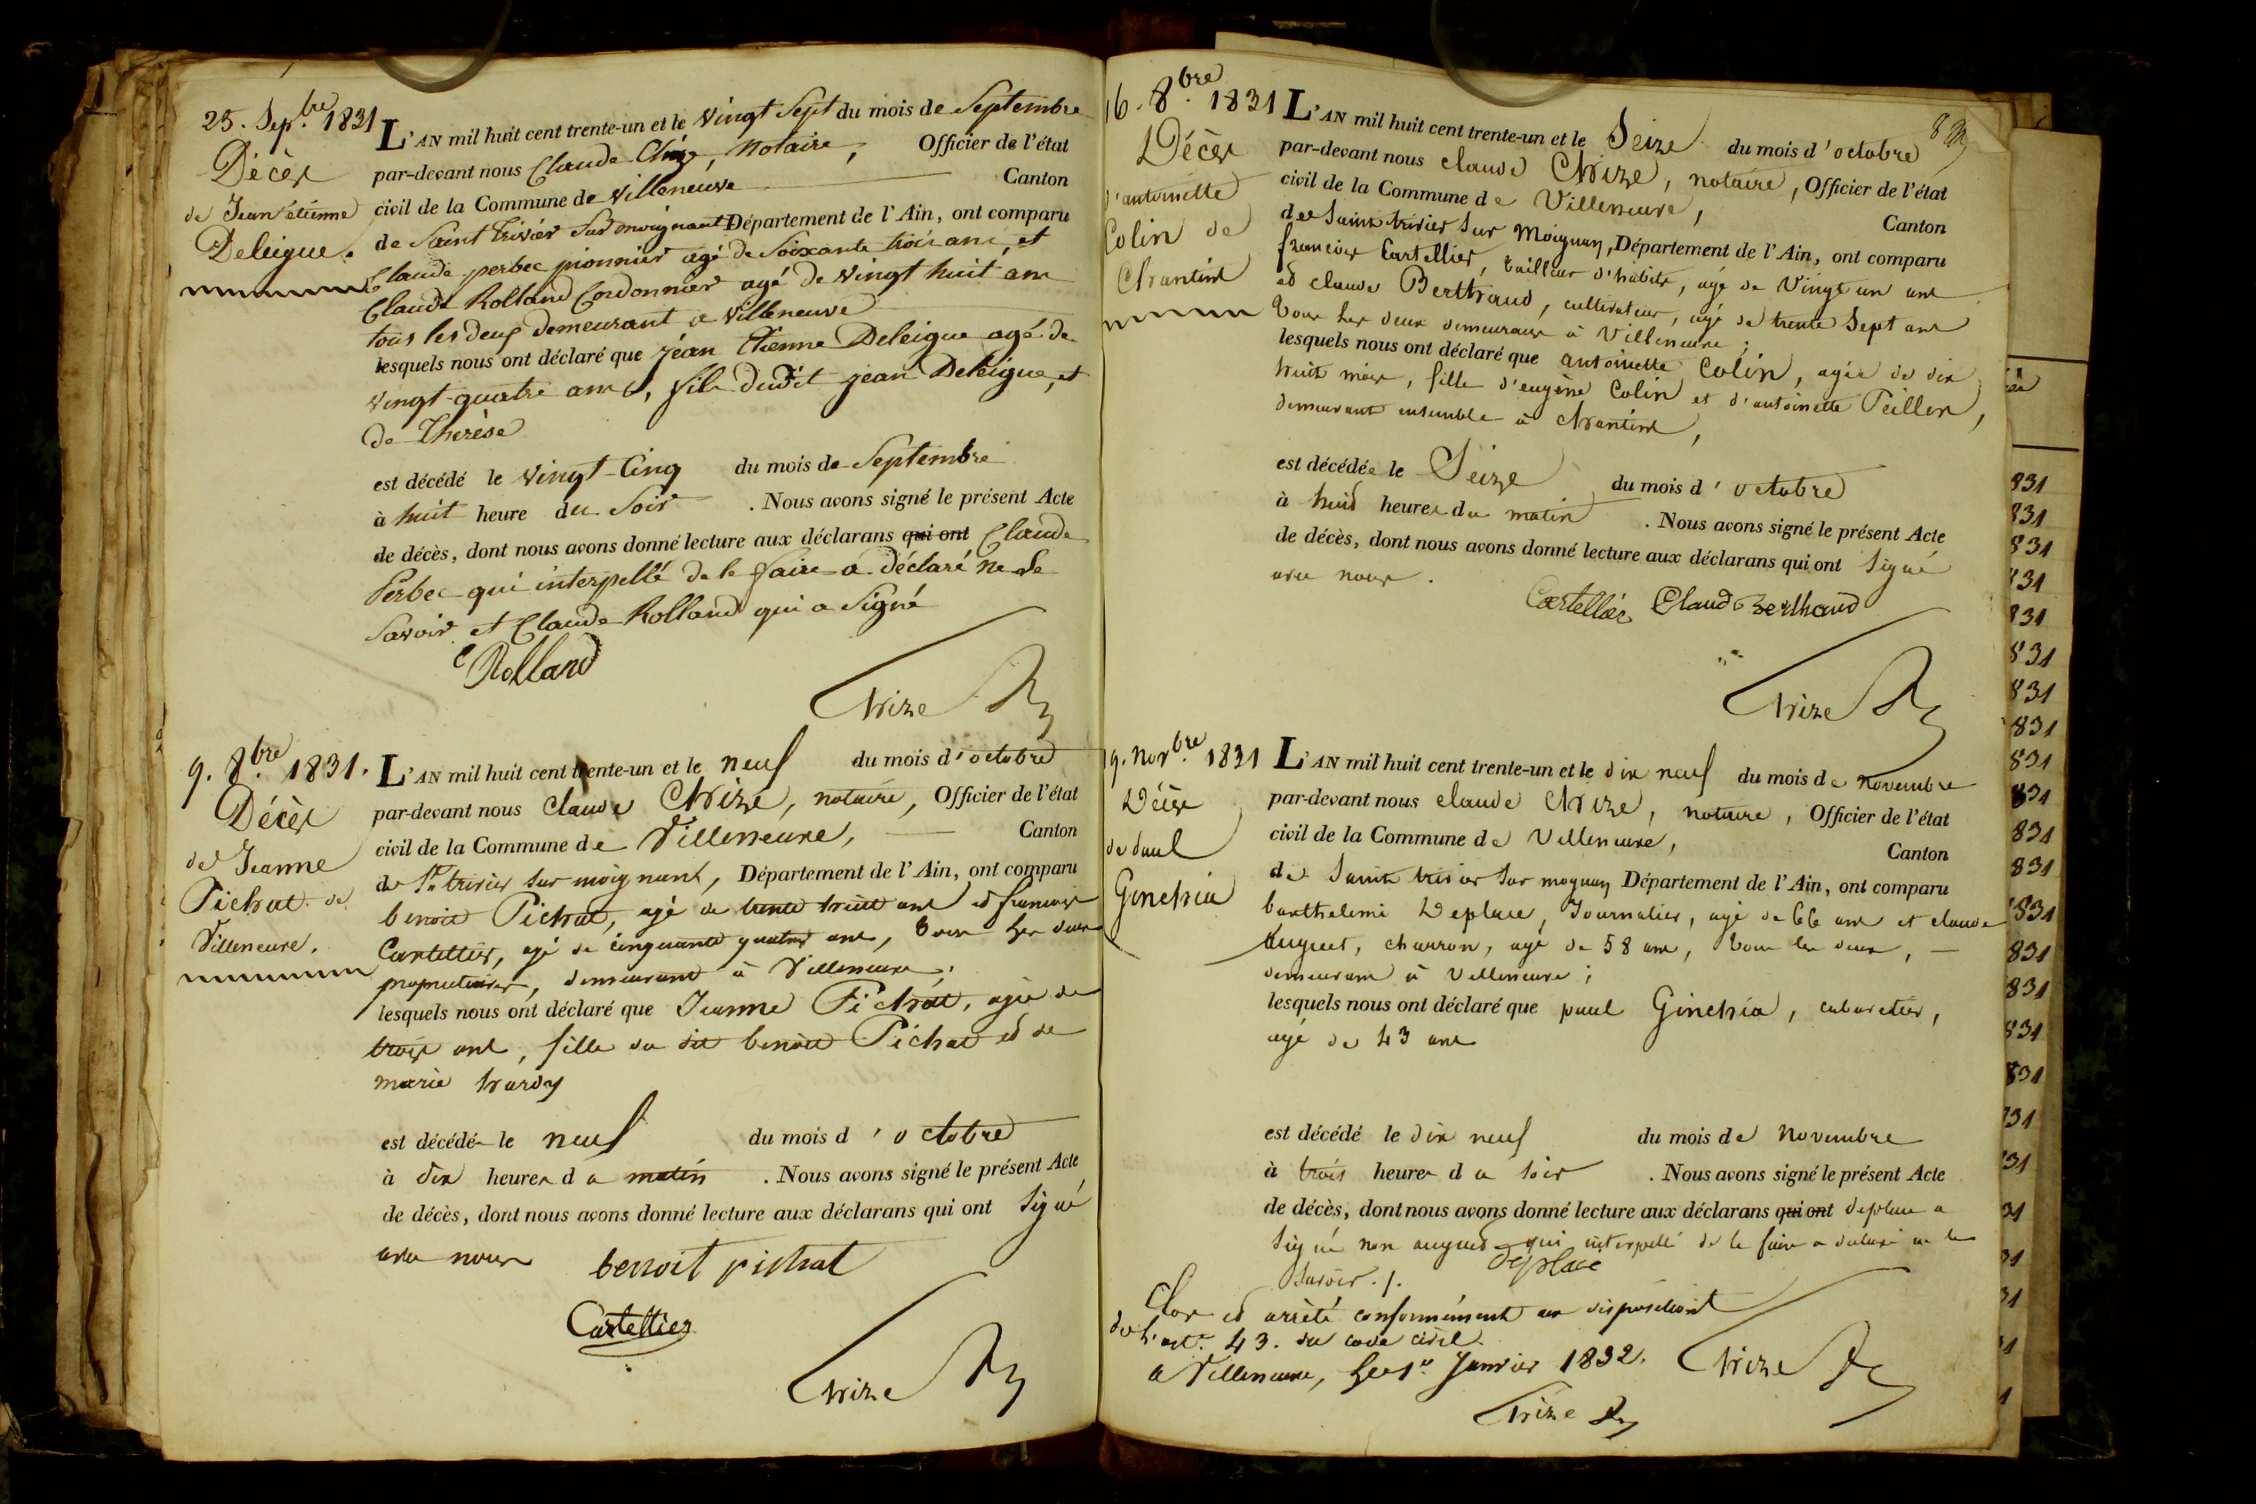 25. Sep.bre 1831
Décès
de Jean étienne
Deleigue.
L'AN mil huit cent trente-un et le vingt Sept du mois de Septembre
par-devant nous Claude Chize, Notaire, Officier de l'état
civil de la Commune de Villeneuve Canton
de Saint Trivier Sur moignant Département de l'Ain, ont comparu
Claude perbec pionnier agé de Soixante trois ans, et
Claude Rolland Cordonnier agé de vingt huit ans
tous les deux demeurant a Villeneuve
lesquels nous ont déclaré que jéan Etienne Deleigue agé de
vingt-quatre ans, fils dudit jean Deleigue, et
de Thérèse
est décédé le vingt-Cinq du mois de Septembre
à huit heure du Soir . Nous avons signé le présent Acte
de décès, dont nous avons donné lecture aux déclarans qui ont Claude
Perbec qui interpellé de le faire a déclaré ne le
Savoir et Claude Rolland qui a Signé
C Rolland
Chize
9. 8.bre 1831.
Décès
de Jeanne
Pichat de
Villeneuve.
L'AN mil huit cent trente-un et le neuf du mois d'octobre
par-devant nous Claude Chize, notaire, Officier de l'état
civil de la Commune de Villeneuve, Canton
de St. trivier sur moignant, Département de l'Ain, ont comparu
benoit Pichat, agé de trente huit ans et francois
Cartellier, agé de cinquante quatre ans, tous les deux
proprietaires, demeurant à Villeneuve;
lesquels nous ont déclaré que Jeanne Pichat, agée de
trois ans, fille du dit benoit Pichat et de
marie hardy
est décédé le neuf du mois d'octobre
à dix heures du matin . Nous avons signé le présent Acte
de décès, dont nous avons donné lecture aux déclarans qui ont Signé
avec nous
benoit pichat
Cartellier
Chize
8
16. 8.bre 1831
Décès
d'antoinette
Colin de
Chantint
L'AN mil huit cent trente-un et le Seize du mois d'octobre
par-devant nous Claude Chize, notaire, Officier de l'état
civil de la Commune de Villeneuve, Canton
de Saint trivier sur Moignan, Département de l'Ain, ont comparu
francois Cartellier, tailleur d'habits, agé de Vingt un ans
et claude Berthaud, cultivateur, agé de trente Sept ans
tous les deux demeurans à Villeneuve;
lesquels nous ont déclaré que antoinette Colin, agée de dix
huit mois, fille d'eugène Colin et d'antoinette Peillon,
demeurant ensemble à Chantint,
est décédée le Seize du mois d'octobre
à huit heures du matin . Nous avons signé le présent Acte
de décès, dont nous avons donné lecture aux déclarans qui ont Signé
avec nous.
Cartellier Claud Berthaud
Chize
19. Nov.bre 1831
Décès
de Paul
Ginchia
L'AN mil huit cent trente-un et le dix neuf du mois de Novembre
par-devant nous Claude Chize, notaire, Officier de l'état
civil de la Commune de Villeneuve, Canton
de Saint trivier sur moignan Département de l'Ain, ont comparu
barthelemi Deplace, Journalier, agé de 66 ans et claude
auguet, charron, agé de 58 ans, tous les deux,
demeurans à Villeneuve;
lesquels nous ont déclaré que paul Ginchia, cabaretier,
agé de 43 ans
est décédé le dix neuf du mois de Novembre
à trois heures du soir . Nous avons signé le présent Acte
de décès, dont nous avons donné lecture aux déclarans qui ont deplace a
Signé non auguet qui interpellé de le faire a declaré ne le
Savoir./.
deplace
Clos et arrêté conformément aux dispositions
de l'art. 43. du code civil.
a Villeneuve, le 1er. Janvier 1832. Chize
Chize
831
831
831
831
831
831
831
831
831
831
831
831
831
831
831
831
831
831
31
31
31
31